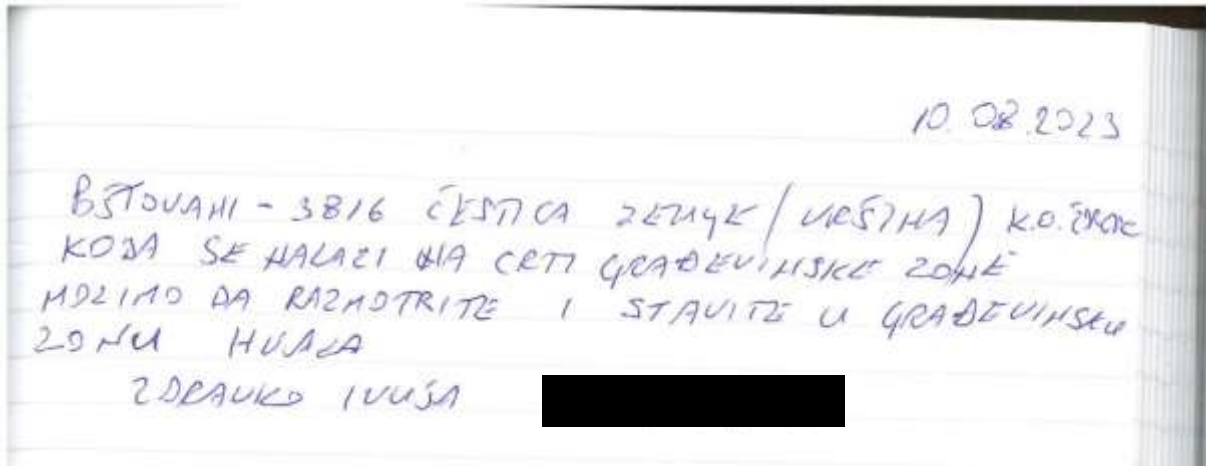 10.08.2023
- 3816 ČESTICA ZEMLJE (VRŠINA) K.O.
KOJA SE NALAZI NA CRTI GRAĐEVINSKE ZONE
MOLIMO DA RAZMOTRITE I STAVITE U GRAĐEVINSKU
ZONU HVALA
ZDRAVKO